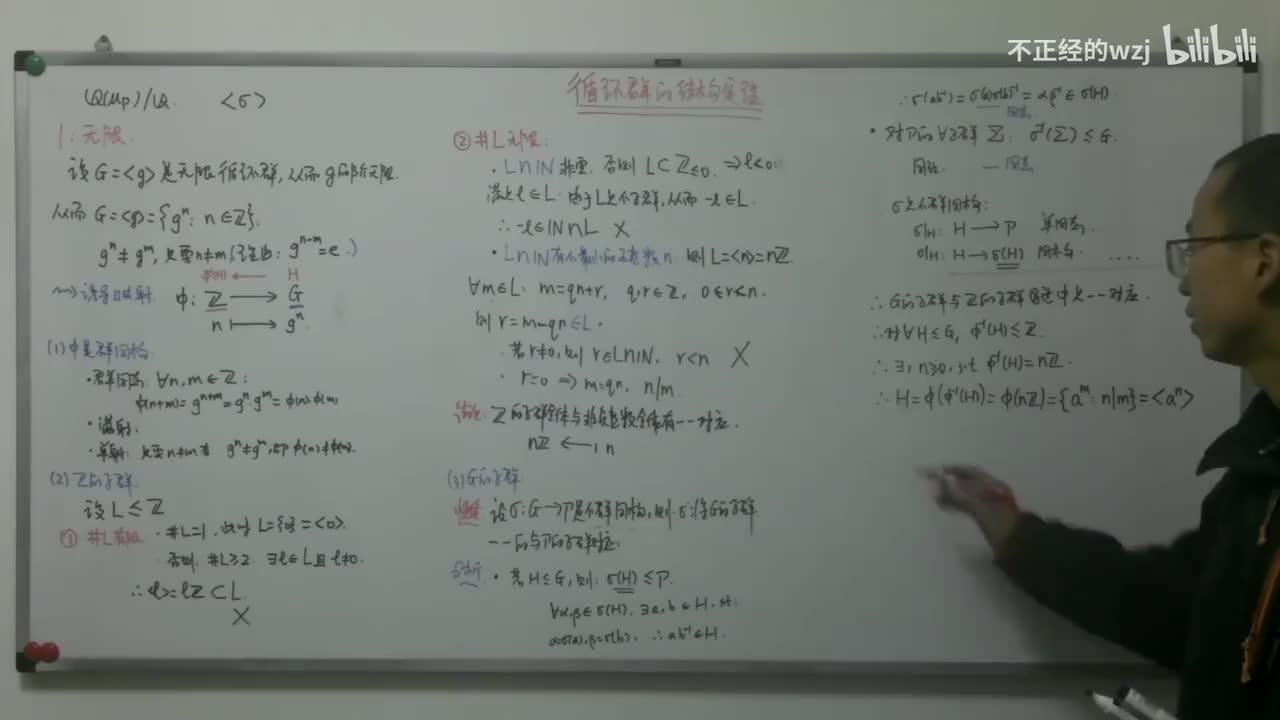 不正经的wzj bilibili
循环群的结构实验
Q(μp)/Q. <σ>
1. 无限.
设G=<g>是无限循环群,从而g的阶无限.
从而G=<g>={gⁿ: n∈Z}.
gⁿ≠gᵐ,只要n≠m(注意由: gⁿ⁻ᵐ=e.)
φ⁻¹(H) ← H
~~> 诱导映射 φ: Z → G
n ↦ gⁿ.
(1) φ是群同构
·群同态: ∀n,m∈Z:
φ(n+m)=gⁿ⁺ᵐ=gⁿ·gᵐ=φ(n)·φ(m)
·满射.
·单射: 只要n≠m有 gⁿ≠gᵐ,即φ(n)≠φ(m).
(2) Z的子群.
设L≤Z
① #L有限 ·#L=1,此时L={0}=<0>.
否则, #L≥2. ∃ℓ∈L且ℓ≠0.
∴<ℓ>=ℓZ⊂L.
X
② #L无限:
·L∩N非空. 否则L⊂Z≤0. ⇒ℓ<0:
满足ℓ∈L. 由于L是个子群,从而-ℓ∈L.
∴-ℓ∈N∩L X
·L∩N有个最小的正整数n. 则L=<n>=nZ.
∀m∈L: m=qn+r, q,r∈Z, 0≤r<n.
则r=m-qn∈L.
·若r≠0,则r∈L∩N. r<n X
·r=0 ⇒m=qn, n|m.
结论: Z的子群全体与非负整数全体有一一对应.
nZ ← n
(3) G的子群
设σ:G→P是个群同构,则σ将G的子群
一一的与P的子群对应.
分析 ·若H≤G,则: σ(H)≤P.
∀α,β∈σ(H), ∃a,b∈H. st:
α=σ(a),β=σ(b), ∴ab⁻¹∈H.
∴σ(ab⁻¹)=σ(a)σ(b)⁻¹=αβ⁻¹∈σ(H).
同态.
·对P的∀子群Σ: σ⁻¹(Σ)≤G.
同态
σ是个群同构:
σ|H: H→P 单同态.
σ|H: H→σ(H) 同构. ....
∴G的子群与Z的子群通过φ是一一对应.
∴对∀H≤G, φ⁻¹(H)≤Z.
∴∃, n≥0, s.t φ⁻¹(H)=nZ.
∴H=φ(φ⁻¹(H))=φ(nZ)={aᵐ: n|m}=<aⁿ>